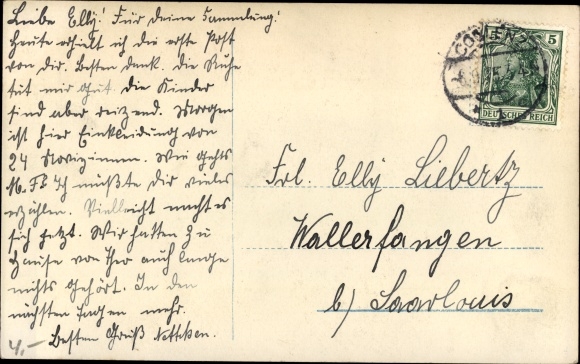 Liebe Elly! Für deine Sammlung!
Heute erhielt ich die erste Post
von dir. Besten Dank. die Ruhe
tut mir gut. die Kinder
sind aber reizend. Morgen
ist hier Einkleidung von
24 Novizinnen. Wie gehts
Ich müßte dir vieles
erzählen. Vielleicht macht es
sich jetzt. Wir hatten zu
Hause von auch lange
nichts gehört. In den
nächsten Tagen mehr.
Besten Gruß
4,-
COBLENZ
5
DEUTSCHES REICH
Frl. Elly Liebertz
Wallerfangen
b/ Saarlouis